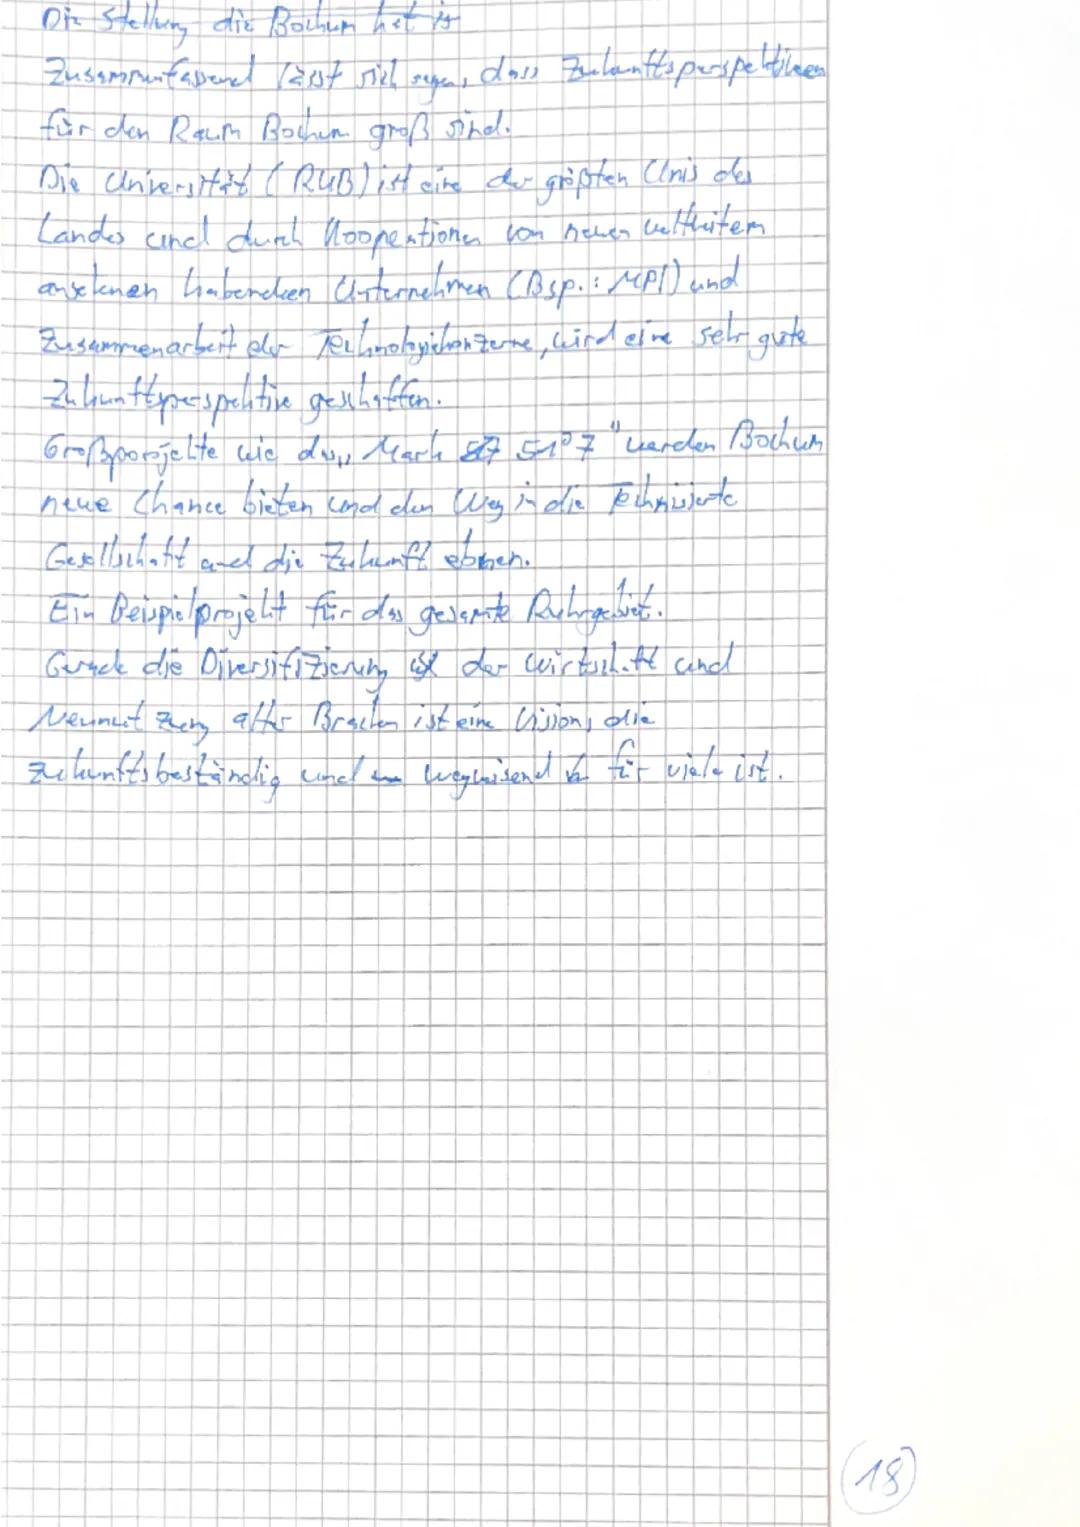 Die Stellung die Bochum hat is
Zusammenfassend lässt sich sagen, dass Zukunftsperspektiven
für den Raum Bochum groß sind.
Die Universität (RUB) ist eine der größten Unis des
Landes und durch Kooperationen von neuen weltweitem
ansehnen habenden Unternehmen (Bsp.: MPI) und
Zusammenarbeit der Technologiekonzerne, wird eine sehr gute
Zukunftsperspektive geschaffen.
Großporojekte wie das „Mark 51°7" werden Bochum
neue Chance bieten und den Weg in die Technisierte
Gesellschaft und die Zukunft ebnen.
Ein Beispielprojekt für das gesamte Ruhrgebiet.
Gerade die Diversifizierung der Wirtschaft und
Neunutzung alter Brachen ist eine Vision, die
zukunftsbeständig und wegweisend für viele ist.
18